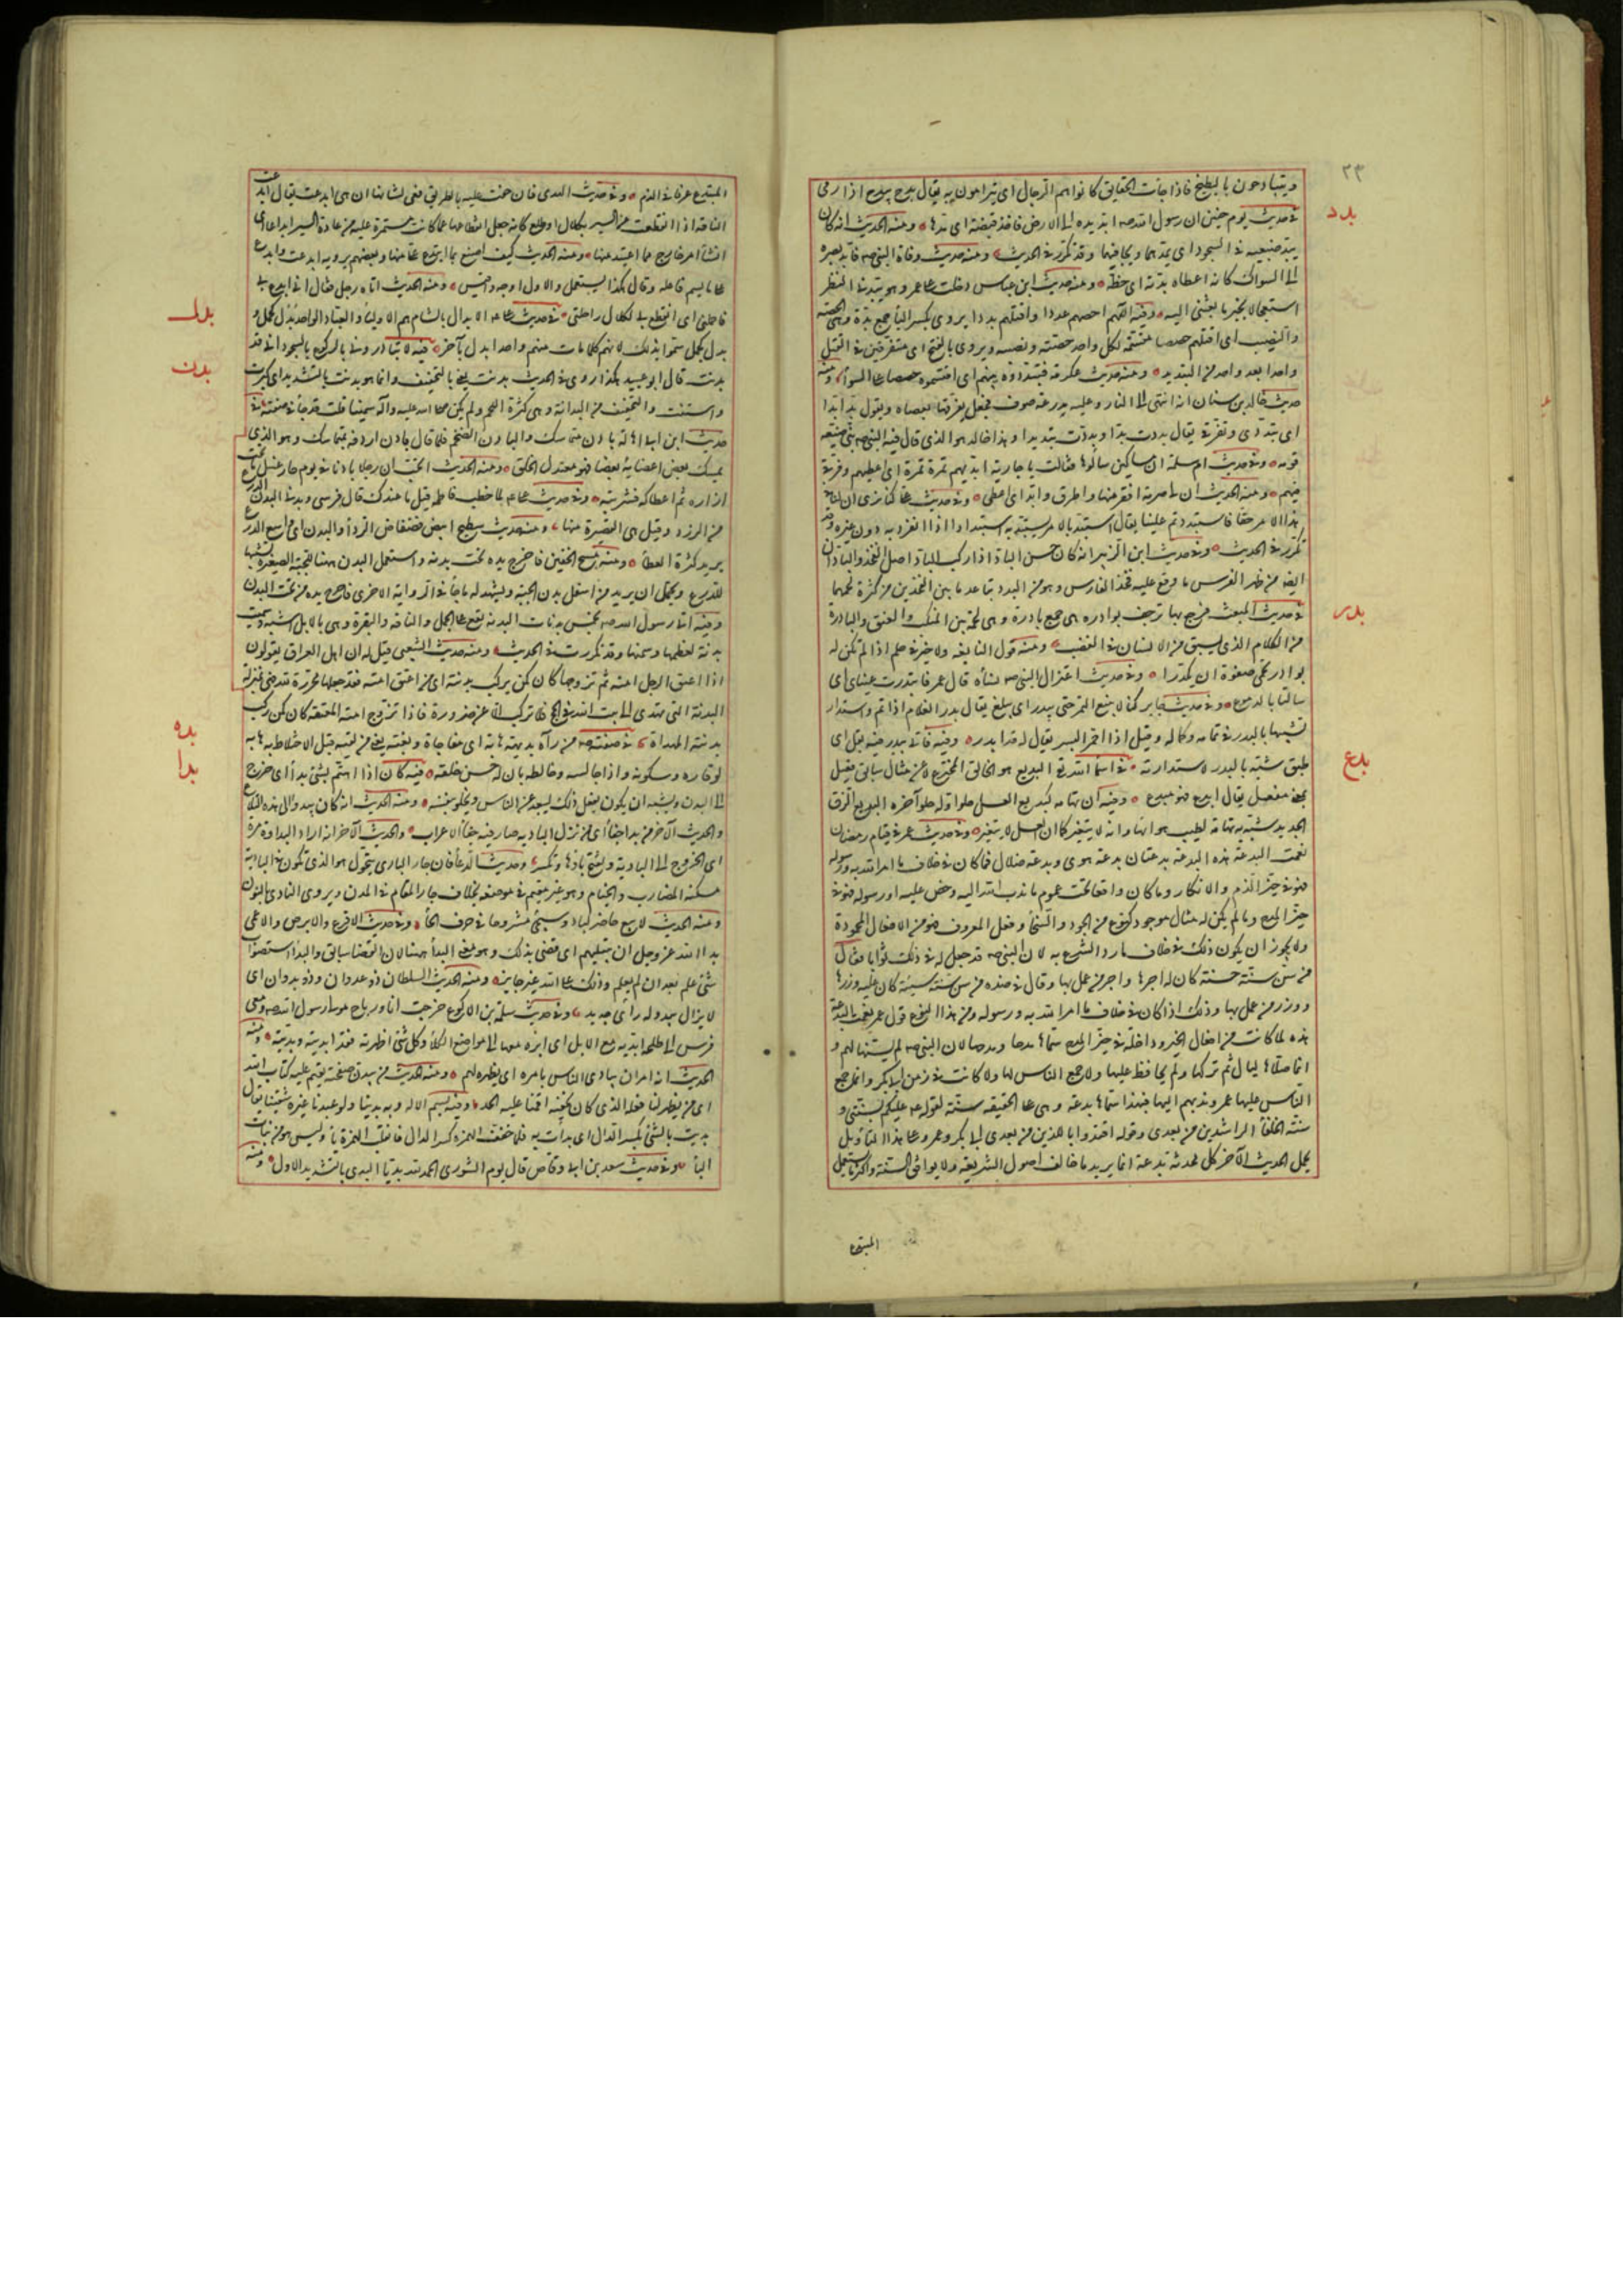 ٢٣
ويتبادحون بالبطيخ فاذا جأت الحقايق كانوا هم الرجال اى يترامون به يقال بدح يبدح اذا رمى
بدد
فى حديث يوم حنين ان رسول الله صه ابد يده الى الارض فاخذ قبضة اى مدها ومنه الحديث انه كان
يبد ضبعيه فى السجود اى يمدهما ويجافيهما وقد تكرر فى الحديث ومنه حديث وفاة النبى صه فابد بصره
الى السواك كانه اعطاه بدته اى حظه ومنه حديث ابن عباس دخلت على عمر وهو يبد فى النظر
استعجالا بخبر ما بعثنى اليه وفيه اللهم احصهم عددا واقتلهم بددا يروى بكسر البأ جمع بدة وهى الحصة
والنصيب اى اقتلهم حصصا مقسمة لكل واحد حصته ونصيبه ويروى بالفتح اى متفرقين فى القتل
واحدا بعد واحد من التبديد ومنه حديث عكرمة فتبددوه بينهم اى اقتسموه حصصا على السوأ ومنه
حديث خالد بن سنان انه انتهى الى النار وعليه مدرعة صوف فجعل يفرقها بعصاه ويقول بدا بدا
اى تبددى وتفرقى يقال بددت بدا وبددت تبديدا وهذا خالد هو الذى قال فيه النبى صه نبى ضيعه
قومه وفى حديث ام سلمة ان مساكين سألوها فقالت يا جارية ابديهم تمرة تمرة اى اعطيهم وفرقى
فيهم ومنه الحديث ان لى صرمة افقر منها واطرق وابد اى اعطى وفى حديث على كنا نرى ان لنا فى
هذا الامر حقا فاستبددتم علينا يقال استبد بالامر يستبد به استبدادا اذا انفرد به دون غيره وقد
تكرر فى الحديث وفى حديث ابن الزبير انه كان حسن الباد اذا ركب الباد اصل الفخذ والبادان
ايضا من ظهر الفرس ما وقع عليه فخذ الفارس وهو من البدد تباعد ما بين الفخذين من كثرة لحمهما
بدر
فى حديث المبعث فرجع بها ترجف بوادره هى جمع بادرة وهى لحمة بين المنكب والعنق والبادرة
من الكلام الذى يسبق من الانسان فى الغضب ومنه قول النابغة ولا خير فى حلم اذا لم تكن له
بوادر تحمى صفوه ان يكدرا وفى حديث اعتزال النبى صه نسأه قال عمر فابتدرت عيناى اى
سالتا بالدموع وفى حديث جابر كنا لا نبيع التمر حتى يبدر اى يبلغ يقال بدر الغلام اذا تم واستدار
تشبيها بالبدر فى تمامه وكماله وقيل اذا احمر البسر يقال له قد ابدر وفيه فاتى ببدر فيه بقل اى
بدع
طبق شبه بالبدر لاستدارته فى اسمأ الله تع البديع هو الخالق المخترع لا عن مثال سابق فعيل
بمعنى مفعل يقال ابدع فهو مبدع وفيه ان تهامة كبديع العسل حلو اوله حلو آخره البديع الزق
الجديد شبه به تهامة لطيب هوائها وانه لا يتغير كما ان العسل لا يتغير وفى حديث عمر فى قيام رمضان
نعمت البدعة هذه البدعة بدعتان بدعة هدى وبدعة ضلال فما كان فى خلاف ما امر الله به ورسوله
فهو فى حيز الذم والانكار وما كان واقعا تحت عموم ما ندب الله اليه وحض عليه او رسوله فهو فى
حيز المدح وما لم يكن له مثال موجود كنوع من الجود والسخأ وفعل المعروف فهو من الافعال المحمودة
ولا يجوز ان يكون ذلك فى خلاف ما ورد الشرع به لان النبى صه قد جعل له فى ذلك ثوابا فقال
من سن سنة حسنة كان له اجرها واجر من عمل بها وقال فى ضده من سن سنة سيئة كان عليه وزرها
ووزر من عمل بها وذلك اذا كان فى خلاف ما امر الله به ورسوله ومن هذا النوع قول عمر نعمت البدعة
هذه لما كانت من افعال الخير وداخلة فى حيز المدح سماها بدعة ومدحها لان النبى صه لم يسنها لهم و
انما صلاها ليال ثم تركها ولم يحافظ عليها ولا جمع الناس لها ولا كانت فى زمن ابى بكر وانما جمع
الناس عليها عمر وندبهم اليها فبهذا سماها بدعة وهى على الحقيقة سنة لقوله صه عليكم بسنتى و
سنة الخلفأ الراشدين من بعدى وقوله اقتدوا باللذين من بعدى ابى بكر وعمر وعلى هذا التأويل
يحمل الحديث الآخر كل محدثة بدعة انما يريد ما خالف اصول الشريعة ولم يوافق السنة واكثر ما يستعمل
المبتدع
المبتدع عرفا فى الذم وفى حديث الهدى فازحفت عليه بالطريق فعى لشانها ان هى ابدعت يقال ابدعت
الناقة اذا انقطعت عن السير بكلال او ظلع كانه جعل انقطاعها عما كانت مستمرة عليه من عادة السير ابداعا اى
انشأ امر خارج عما اعتيد منها ومنه الحديث كيف اصنع بما ابدع على منها وبعضهم يرويه ابدعت وابدع
على ما لم يسم فاعله وقال هكذا يستعمل والاول اوجه واقيس ومنه الحديث اتاه رجل فقال انى ابدع بى
بدل
فاحملنى اى انقطع بى لكلال راحلتى فى حديث على عه الابدال بالشام هم الاوليأ والعباد الواحد بدل كحمل و
بدل كجمل سموا بذلك لانهم كلما مات منهم واحد ابدل بآخر
بدن
فيه لا تبادرونى بالركوع والسجود انى قد
بدنت قال ابو عبيد هكذا روى فى الحديث بدنت يعنى بالتخفيف وانما هو بدنت بالتشديد اى كبرت
واسننت والتخفيف من البدانة وهى كثرة اللحم ولم يكن صلى الله عليه وآله سمينا قلت قد جأ فى صفته فى
حديث ابن ابى هالة بادن متماسك والبادن الضخم فلما قال بادن اردفه بمتماسك وهو الذى
يمسك بعض اعضايه بعضا فهو معتدل الخلق ومنه الحديث اتحب ان رجلا بادنا فى يوم حار غسل ما تحت
ازاره ثم اعطاكه فشربته وفى حديث على عه لما خطب فاطمة قيل ما عندك قال فرسى وبدنى البدن الدرع
من الزرد وقيل هى القصيرة منها ومنه حديث سطيح ابيض فضفاض الردأ والبدن اى واسع الدرع
يريد كثرة العطأ ومنه مسح الخفين فاخرج يده تحت بدنه واستعمل البدن ههنا للجبة الصغيرة تشبيها
للدرع ويحتمل ان يريد من اسفل بدن الجبة ويشهد له ما جأ فى الرواية الاخرى فاخرج يده من تحت البدن
وفيه اتى رسول الله صه بخمس بدنات البدنة تقع على الجمل والناقة والبقرة وهى بالابل اشبه وسميت
بدنة لعظمها وسمنها وقد تكررت فى الحديث ومنه حديث الشعبى قيل له ان اهل العراق يقولون
اذا اعتق الرجل امته ثم تزوجها كان كمن يركب بدنته اى من اعتق امته فقد جعلها محررة لله فهى بمنزلة
البدنة التى تهدى الى بيت الله فى الحج فلا تركب الا عن ضرورة فاذا تزوج امته المعتقة كان كمن ركب
بده
بدنته المهداة فى صفته صه من رآه بديهة هابه اى مفاجاة وبغتة يعنى من لقيه قبل الاختلاط به هابه
بدا
لوقاره وسكونه واذا جالسه وخالطه بان له حسن خلقه فيه كان اذا اهتم بشئ بدا اى خرج
الى البدو ويشبه ان يكون يفعل ذلك ليبعد عن الناس ويخلو بنفسه ومنه الحديث انه كان يبدو الى هذه التلاع
والحديث الآخر من بدا جفا اى من نزل البادية صار فيه جفأ الاعراب والحديث الآخر انه اراد البداوة مرة
اى الخروج الى البادية وتفتح بأوها وتكسر وحديث الدعأ فان جار البادى يتحول هو الذى يكون فى البادية
مسكنه المضارب والخيام وهو غير مقيم فى موضعه بخلاف جار المقام فى المدن ويروى النادى بالنون
ومنه الحديث لا يبع حاضر لباد وسيجئ مشروحا فى حرف الحأ وفى حديث الاقرع والابرص والاعمى
بدا لله عز وجل ان يبتليهم اى قضى بذلك وهو معنى البدأ ههنا لان القضا سابق والبدأ استصواب
شئ علم بعد ان لم يعلم وذلك على الله غير جايز ومنه الحديث السلطان ذو عدوان وذو بدوان اى
لا يزال يبدو له رأى جديد وفى حديث سلمة بن الاكوع خرجت انا ورباح مولى رسول الله صه ومعى
فرس ابى طلحة ابديه مع الابل اى ابرزه معها الى مواضع الكلأ وكل شئ اظهرته فقد ابديته وبديته ومنه
الحديث انه امر ان يبادى الناس بامره اى يظهره لهم ومنه الحديث من يبد لنا صفحته نقم عليه كتاب الله
اى من يظهر لنا فعله الذى كان يخفيه اقمنا عليه الحد وفيه بسم الاله وبه بدينا ولو عبدنا غيره شقينا يقال
بديت بالشئ بكسر الدال اى بدأت به فلما خفف الهمزة كسر الدال فانقلبت الهمزة يأ وليس هو من بنات
اليأ وفى حديث سعد بن ابى وقاص قال يوم الشورى الحمد لله بديا البدى بالتشديد الاول ومنه